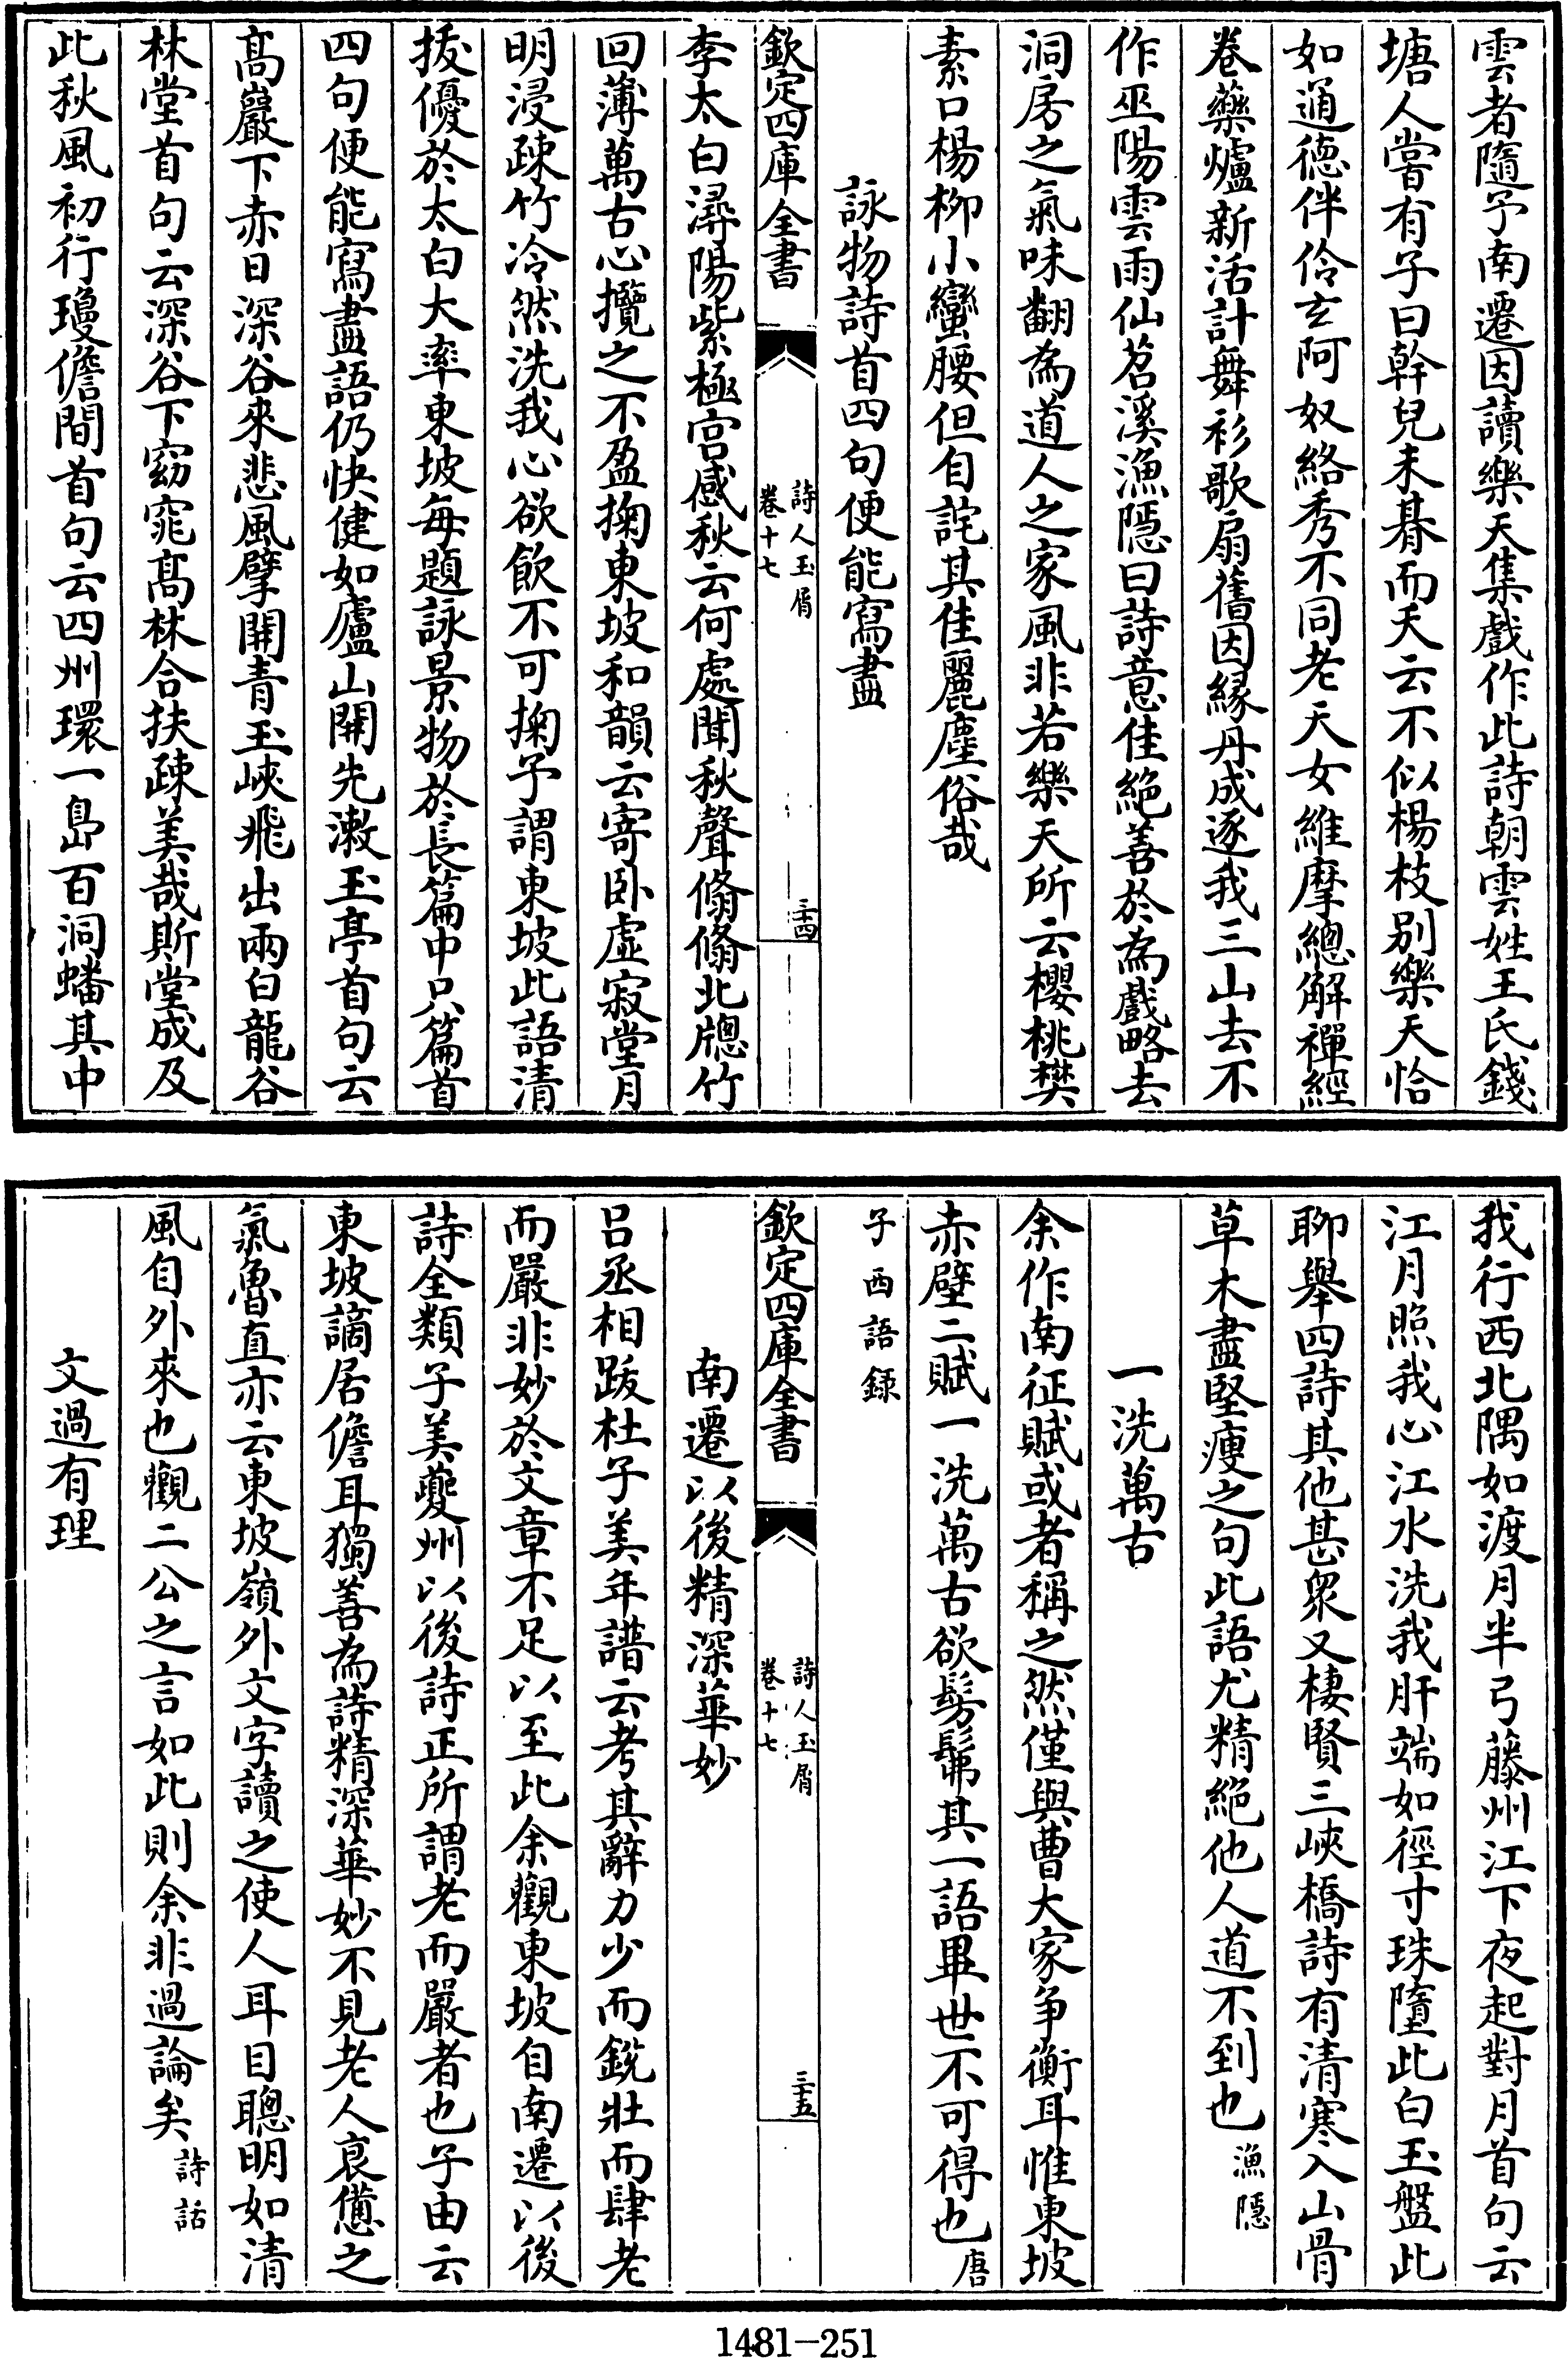 雲者隨予南遷因讀樂天集戲作此詩朝雲姓王氏錢
塘人嘗有子曰幹兒未朞而夭云不似楊枝別樂天恰
如通德伴伶玄阿奴絡秀不同老天女維摩總解禪經
卷藥爐新活計舞衫歌扇舊因緣丹成逐我三山去不
作巫陽雲雨仙苕溪漁隱曰詩意佳絶善於為戲略去
洞房之氣味翻為道人之家風非若樂天所云櫻桃樊
素口楊柳小蠻腰但自詫其佳麗塵俗哉
詠物詩首四句便能寫盡
欽定四庫全書
詩人玉屑
卷十七
三十四
李太白潯陽紫極宮感秋云何處聞秋聲翛翛北牕竹
回薄萬古心攬之不盈掬東坡和韻云寄卧虛寂堂月
明浸疎竹冷然洗我心欲飲不可掬予謂東坡此語清
拔優於太白大率東坡每題詠景物於長篇中只篇首
四句便能寫盡語仍快健如廬山開先漱玉亭首句云
髙巖下赤日深谷來悲風擘開青玉峽飛出兩白龍谷
林堂首句云深谷下窈窕髙林合扶疎美哉斯堂成及
此秋風初行瓊儋間首句云四州環一島百洞蟠其中
我行西北隅如渡月半弓藤州江下夜起對月首句云
江月照我心江水洗我肝端如徑寸珠墮此白玉盤此
聊舉四詩其他甚衆又棲賢三峽橋詩有清寒入山骨
草木盡堅瘦之句此語尤精絶他人道不到也漁隱
一洗萬古
余作南征賦或者稱之然僅與曹大家争衡耳惟東坡
赤壁二賦一洗萬古欲髣髴其一語畢世不可得也唐
子西語録
欽定四庫全書
詩人玉屑
卷十七
三十五
南遷以後精深華妙
吕丞相跋杜子美年譜云考其辭力少而鋭壯而肆老
而嚴非妙於文章不足以至此余觀東坡自南遷以後
詩全類子美夔州以後詩正所謂老而嚴者也子由云
東坡謫居儋耳獨善為詩精深華妙不見老人衰憊之
氣魯直亦云東坡嶺外文字讀之使人耳目聰明如清
風自外來也觀二公之言如此則余非過論矣詩話
文過有理
1481-251